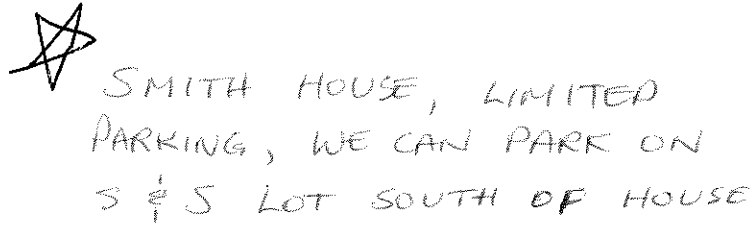 SMITH HOUSE, LIMITED
PARKING, WE CAN PARK ON
S & S LOT SOUTH OF HOUSE